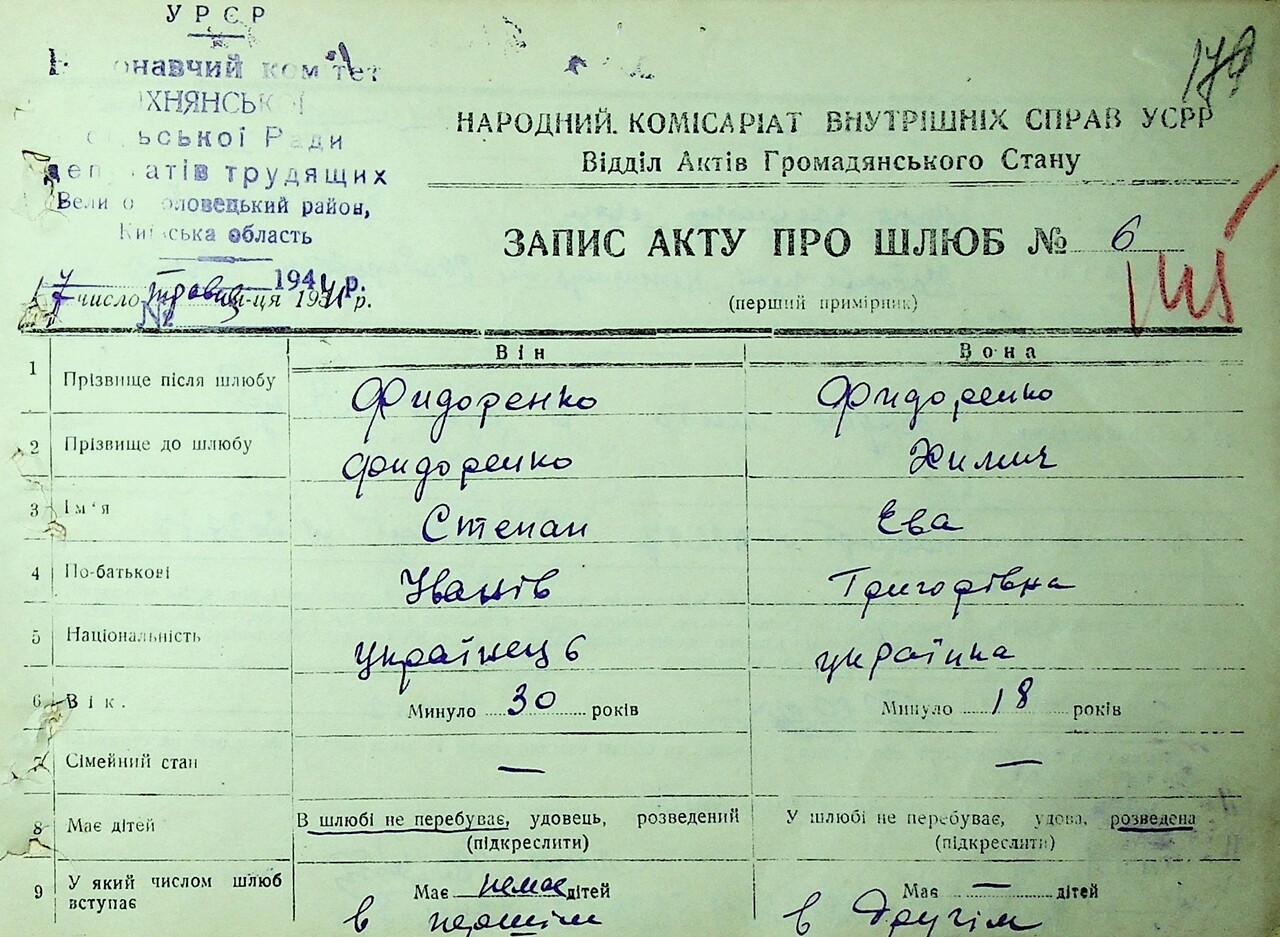 УРСР
онавчий комітет
ХНЯНСЬКОЇ
ської Ради
депутатів трудящих
Велико оловецький район,
Київська область
194 р.
17 число травня м-ця 1941 р.
179
НАРОДНИЙ КОМІСАРІАТ ВНУТРІШНІХ СПРАВ УСРР
Відділ Актів Громадянського Стану
ЗАПИС АКТУ ПРО ШЛЮБ № 6
(перший примірник)
Він Вона
1 Прізвище після шлюбу Фидоренко Фидоренко
2 Прізвище до шлюбу Фидоренко Химич
3 Ім'я Степан Ева
4 По-батькові Іванів Григорівна
5 Національність українець українка
6 Вік. Минуло 30 років Минуло 18 років
7 Сімейний стан — —
8 Має дітей В шлюбі не перебуває, удовець, розведений У шлюбі не перебуває, удова, розведена
(підкреслити) (підкреслити)
9 У який числом шлюб вступає Має немає дітей Має — дітей
в першім в другім